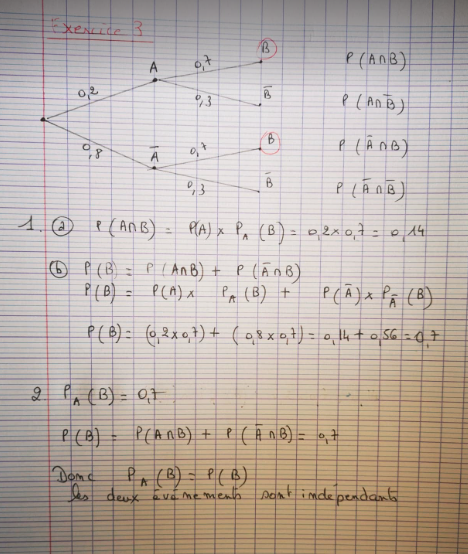 Exercice 3
B
A 0,7 P(A∩B)
0,2 0,3 B̄ P(A∩B̄)
0,8 Ā 0,7 B P(Ā∩B)
0,3 B̄ P(Ā∩B̄)
1. ⓐ P(A∩B) = P(A) × P_A(B) = 0,2×0,7 = 0,14
ⓑ P(B) = P(A∩B) + P(Ā∩B)
P(B) = P(A) × P_A(B) + P(Ā) × P_Ā(B)
P(B) = (0,2×0,7) + (0,8×0,7) = 0,14 + 0,56 = 0,7
2. P_A(B) = 0,7
P(B) = P(A∩B) + P(Ā∩B) = 0,7
Donc P_A(B) = P(B)
les deux évènements sont indépendants